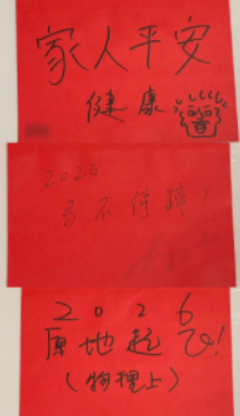 家人平安
健康
2026
马不停蹄！
2026
原地起飞!
(物理上)